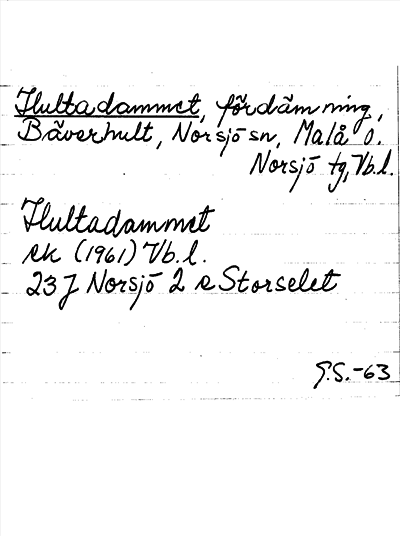 Hultadammet, fördämning,
Bäverhult, Norsjö sn, Malå o.
Norsjö tg, Vb.l.
Hultadammet
ek (1961) Vb.l.
23 J Norsjö 2 c Storselet
G.S.-63